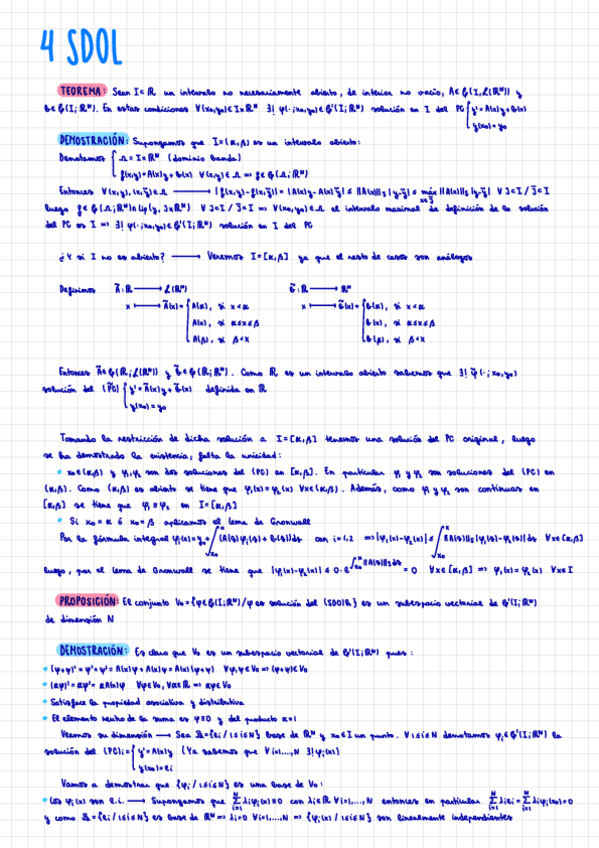 4 SDOL
TEOREMA: Sean I⊂ℝ un intervalo no necesariamente abierto, de interior no vacío, A∈C(I,L(ℝᴺ)) y
b∈C(I;ℝᴺ). En estas condiciones ∀(x₀,y₀)∈I×ℝᴺ ∃! φ(·;x₀,y₀)∈C¹(I;ℝᴺ) solución en I del PC { y'=A(x)y+b(x)
y(x₀)=y₀
DEMOSTRACIÓN: Supongamos que I=(α,β) es un intervalo abierto:
Denotamos { Ω=I×ℝᴺ (dominio banda)
f(x,y)=A(x)y+b(x) ∀(x,y)∈Ω ⇒ f∈C(Ω;ℝᴺ)
Entonces ∀(x,y),(x,ỹ)∈Ω ⟶ |f(x,y)-f(x,ỹ)|=|A(x)y-A(x)ỹ| ≤ ||A(x)||s|y-ỹ| ≤ máx ||A(x)||s|y-ỹ| ∀J⊂I / J̄⊂I
x∈J̄
luego f∈C(Ω;ℝᴺ)∩Lip(y,J×ℝᴺ) ∀J⊂I / J̄⊂I ⇒ ∀(x₀,y₀)∈Ω el intervalo maximal de definición de la solución
del PC es I ⇒ ∃! φ(·;x₀,y₀)∈C¹(I;ℝᴺ) solución en I del PC
¿Y si I no es abierto? ⟶ Veremos I=[α,β] ya que el resto de casos son análogos
Definimos Ã:ℝ ⟶ L(ℝᴺ) b̃:ℝ ⟶ ℝᴺ
x ⟼ Ã(x)= { A(α), si x<α x ⟼ b̃(x)= { b(α), si x<α
A(x), si α≤x≤β b(x), si α≤x≤β
A(β), si β<x b(β), si β<x
Entonces Ã∈C(ℝ;L(ℝᴺ)) y b̃∈C(ℝ;ℝᴺ). Como ℝ es un intervalo abierto sabemos que ∃! φ̃(·;x₀,y₀)
solución del (P̃C) { y'=Ã(x)y+b̃(x) definida en ℝ
y(x₀)=y₀
Tomando la restricción de dicha solución a I=[α,β] tenemos una solución del PC original, luego
se ha demostrado la existencia, falta la unicidad:
• x₀∈(α,β) y φ₁,φ₂ son dos soluciones del (PC) en [α,β]. En particular φ₁ y φ₂ son soluciones del (PC) en
(α,β). Como (α,β) es abierto se tiene que φ₁(x)=φ₂(x) ∀x∈(α,β). Además, como φ₁ y φ₂ son continuas en
[α,β] se tiene que φ₁≡φ₂ en I=[α,β]
• Si x₀=α ó x₀=β aplicamos el lema de Gronwall
Por la fórmula integral φᵢ(x)=y₀+∫ₓ₀ˣ(A(s)φᵢ(s)+b(s))ds con i=1,2 ⇒ |φ₁(x)-φ₂(x)| ≤ ∫ₓ₀ˣ||A(s)||s|φ₁(s)-φ₂(s)|ds ∀x∈[α,β]
luego, por el lema de Gronwall se tiene que |φ₁(x)-φ₂(x)| ≤ 0·e^∫ₓ₀ˣ||A(s)||s ds = 0 ∀x∈[α,β] ⇒ φ₁(x)=φ₂(x) ∀x∈I
PROPOSICIÓN: El conjunto V₀={φ∈C¹(I;ℝᴺ)/φ es solución del (SDOL)₀} es un subespacio vectorial de C¹(I;ℝᴺ)
de dimensión N
DEMOSTRACIÓN: Es claro que V₀ es un subespacio vectorial de C¹(I;ℝᴺ) pues:
• (φ+ψ)'=φ'+ψ'=A(x)φ+A(x)ψ=A(x)(φ+ψ) ∀φ,ψ∈V₀ ⇒ (φ+ψ)∈V₀
• (αφ)'=αφ'=αA(x)φ ∀φ∈V₀,∀α∈ℝ ⇒ αφ∈V₀
• Satisface la propiedad asociativa y distributiva
• El elemento neutro de la suma es φ≡0 y del producto α=1
Veamos su dimensión ⟶ Sea B={eᵢ/1≤i≤N} base de ℝᴺ y x₀∈I un punto. ∀1≤i≤N denotamos φᵢ∈C¹(I;ℝᴺ) la
solución del (PC)ᵢ= { y'=A(x)y (Ya sabemos que ∀i=1,...,N ∃!φᵢ(x))
y(x₀)=eᵢ
Vamos a demostrar que {φᵢ/1≤i≤N} es una base de V₀:
• Los φᵢ(x) son l.i. ⟶ Supongamos que Σᵢ₌₁ᴺ λᵢφᵢ(x)=0 con λᵢ∈ℝ ∀i=1,...,N entonces en particular Σᵢ₌₁ᴺ λᵢeᵢ=Σᵢ₌₁ᴺ λᵢφᵢ(x₀)=0
y como B={eᵢ/1≤i≤N} es base de ℝᴺ ⇒ λᵢ=0 ∀i=1,...,N ⇒ {φᵢ(x)/1≤i≤N} son linealmente independientes